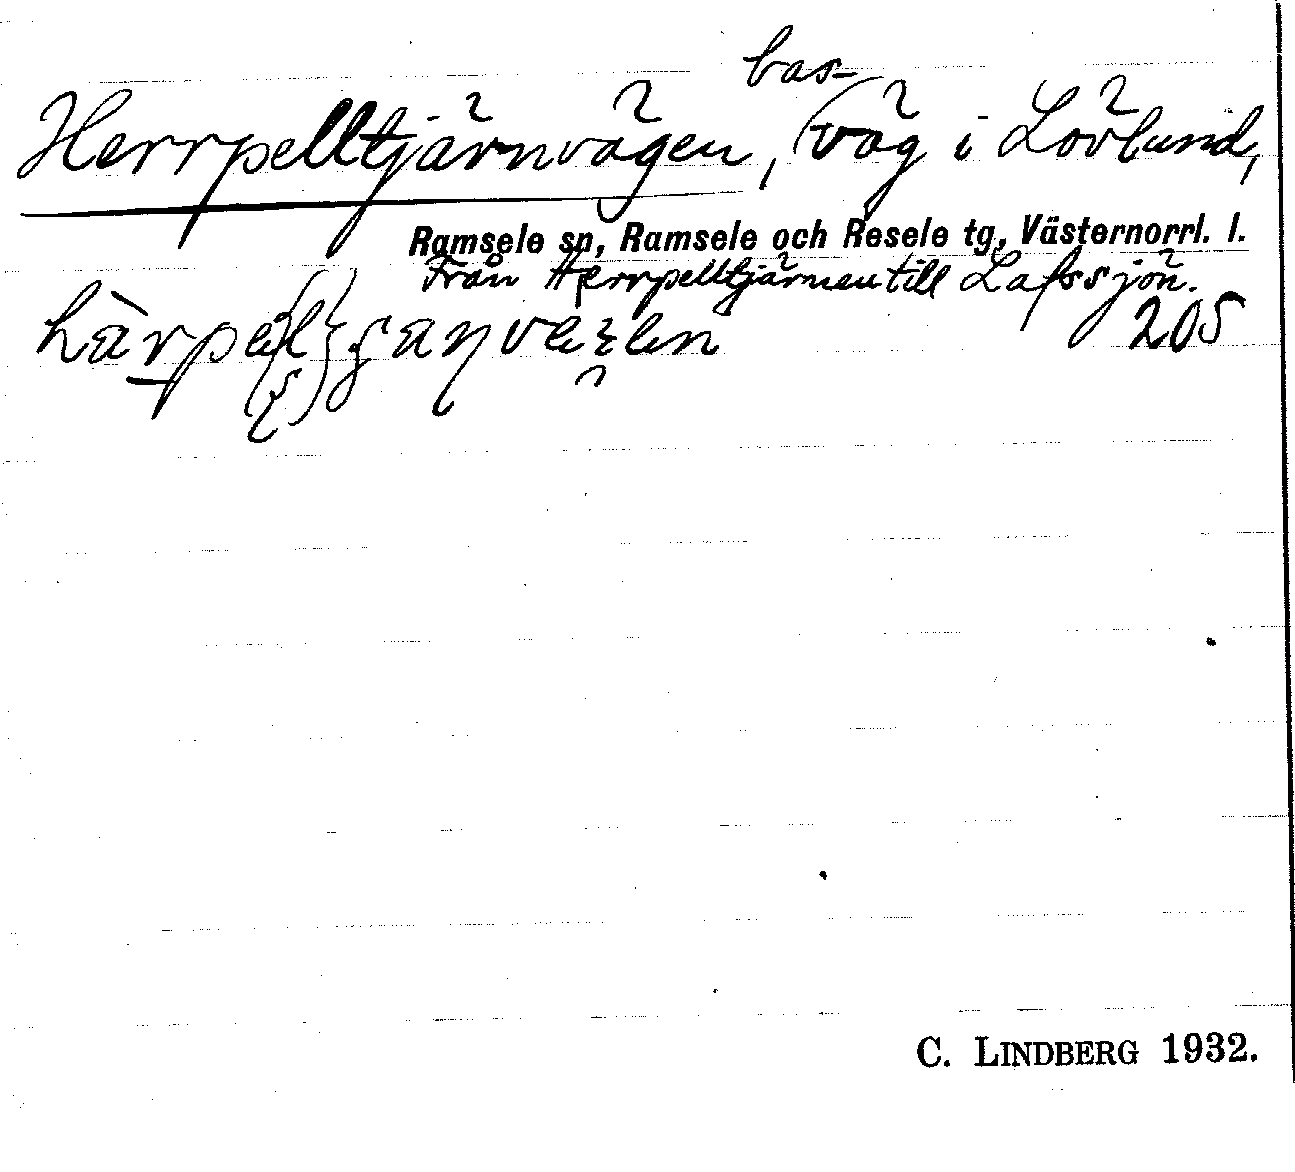 Herrpelltjärnvägen, (bas-väg i Lövlund,
Ramsele sn, Ramsele och Resele tg, Västernorrl. l.
Från Herrpelltjärnen till Lafssjön.
205
C. LINDBERG 1932.